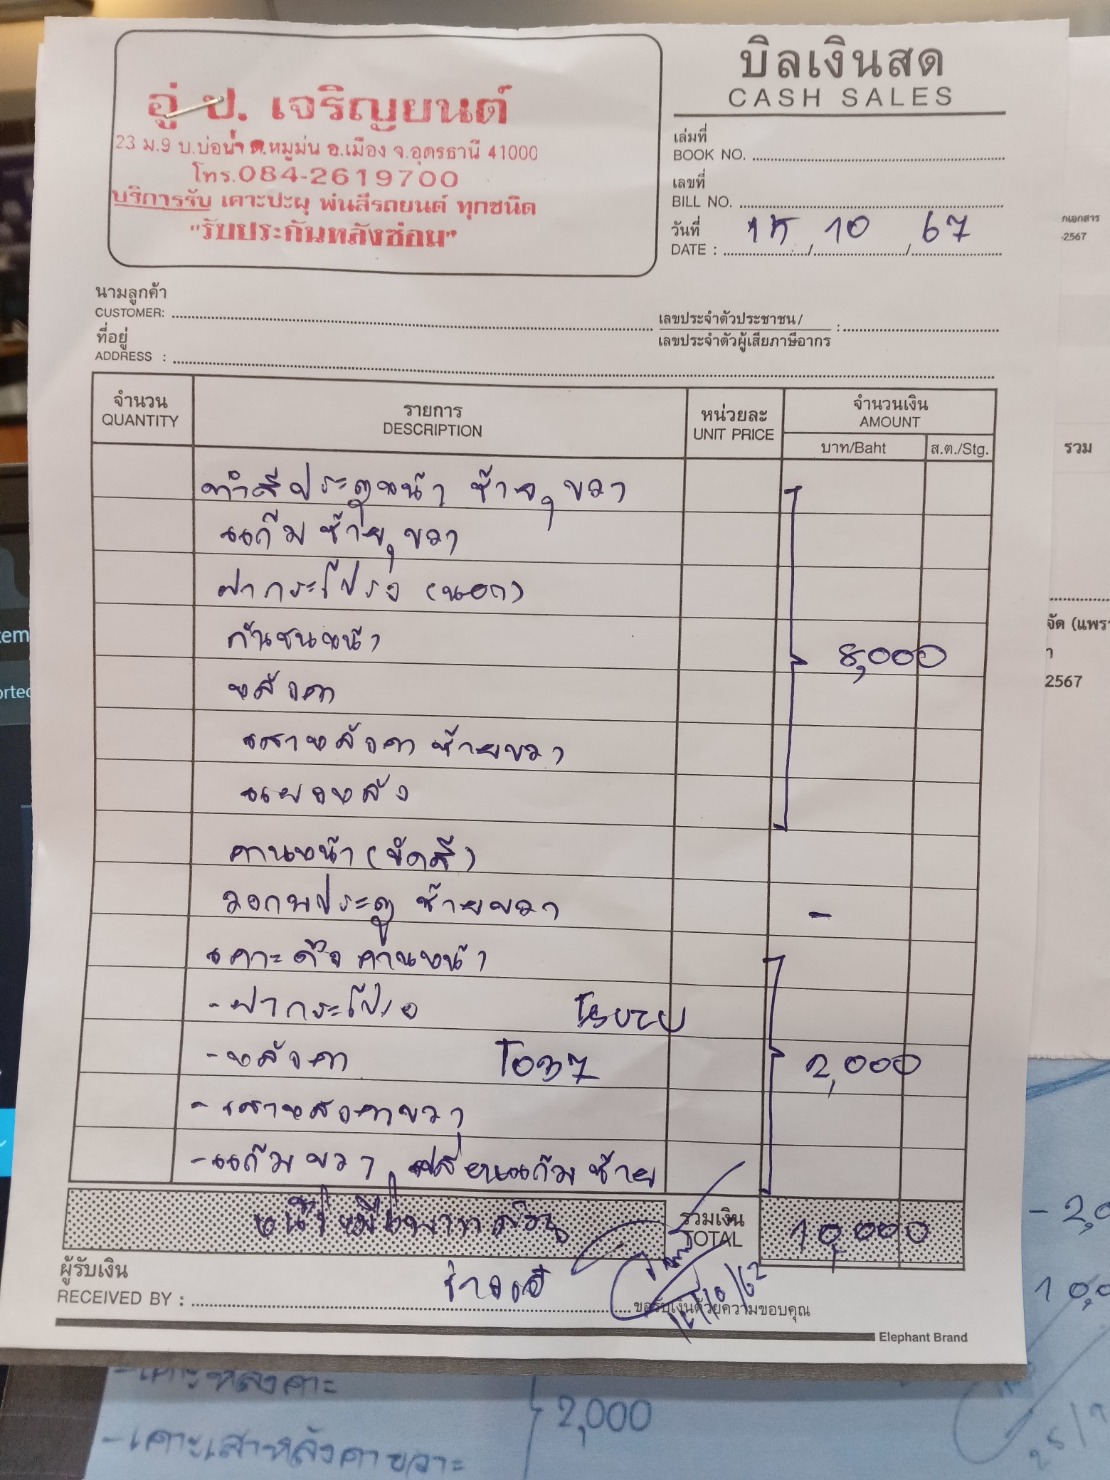 อู่ ป. เจริญยนต์
23 ม.9 บ.บ่อน้ำ ต.หมูม่น อ.เมือง จ.อุดรธานี 41000
โทร.084-2619700
บริการรับ เคาะปะผุ พ่นสีรถยนต์ ทุกชนิด
"รับประกันหลังซ่อม"
บิลเงินสด
CASH SALES
เล่มที่
BOOK NO.
เลขที่
BILL NO.
วันที่
DATE : 15 / 10 / 67
นามลูกค้า
CUSTOMER:
เลขประจำตัวประชาชน/
เลขประจำตัวผู้เสียภาษีอากร :
ที่อยู่
ADDRESS :
จำนวน
QUANTITY
รายการ
DESCRIPTION
หน่วยละ
UNIT PRICE
จำนวนเงิน
AMOUNT
บาท/Baht
ส.ต./Stg.
ทำสีประตูหน้า ซ้าย, ขวา
แก้มซ้าย, ขวา
ฝากระโปรง (นอก)
กันชนหน้า
8,000
หลังคา
เสาหลังคา ซ้ายขวา
แผงหลัง
คานหน้า (ขัดสี)
ประตู ซ้ายขวา -
เคาะ ดึง คานหน้า
- ฝากระโปรง Isuzu
- หลังคา 2,000
- เสาหลังคาขวา
- แก้มขวา, เปลี่ยนแก้มซ้าย
หนึ่งหมื่นบาทถ้วน
รวมเงิน
TOTAL
10,000
ผู้รับเงิน
RECEIVED BY :
ขอรับเงินด้วยความขอบคุณ
Elephant Brand
กเอกสาร
-2567
รวม
จัด (แพรา
2567
tem
orted
- 2,0
10,0
- เคาะหลังคา
2,000
- เคาะเสาหลังคาขวา